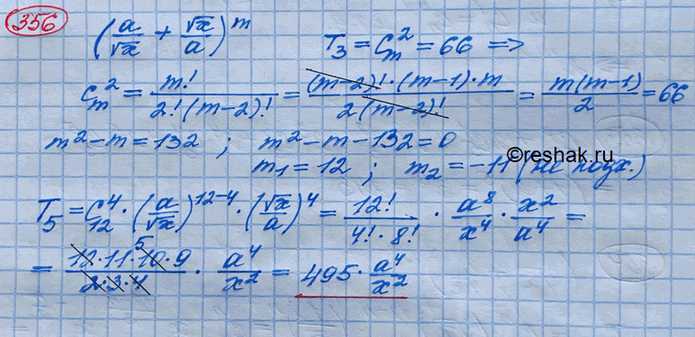 356
(a/√x + √x/a)^m    T₃ = C_m^2 = 66 =>
C_m^2 = m!/(2!(m-2)!) = ((m-2)!·(m-1)·m)/(2(m-2)!) = m(m-1)/2 = 66
m² - m = 132 ; m² - m - 132 = 0
©reshak.ru
m₁ = 12 ; m₂ = -11 (не подх.)
T₅ = C_12^4 · (a/√x)^(12-4) · (√x/a)^4 = 12!/(4!·8!) · a⁸/x⁴ · x²/a⁴ =
= (12·11·10 5·9)/(2·3·4) · a⁴/x² = 495 · a⁴/x²